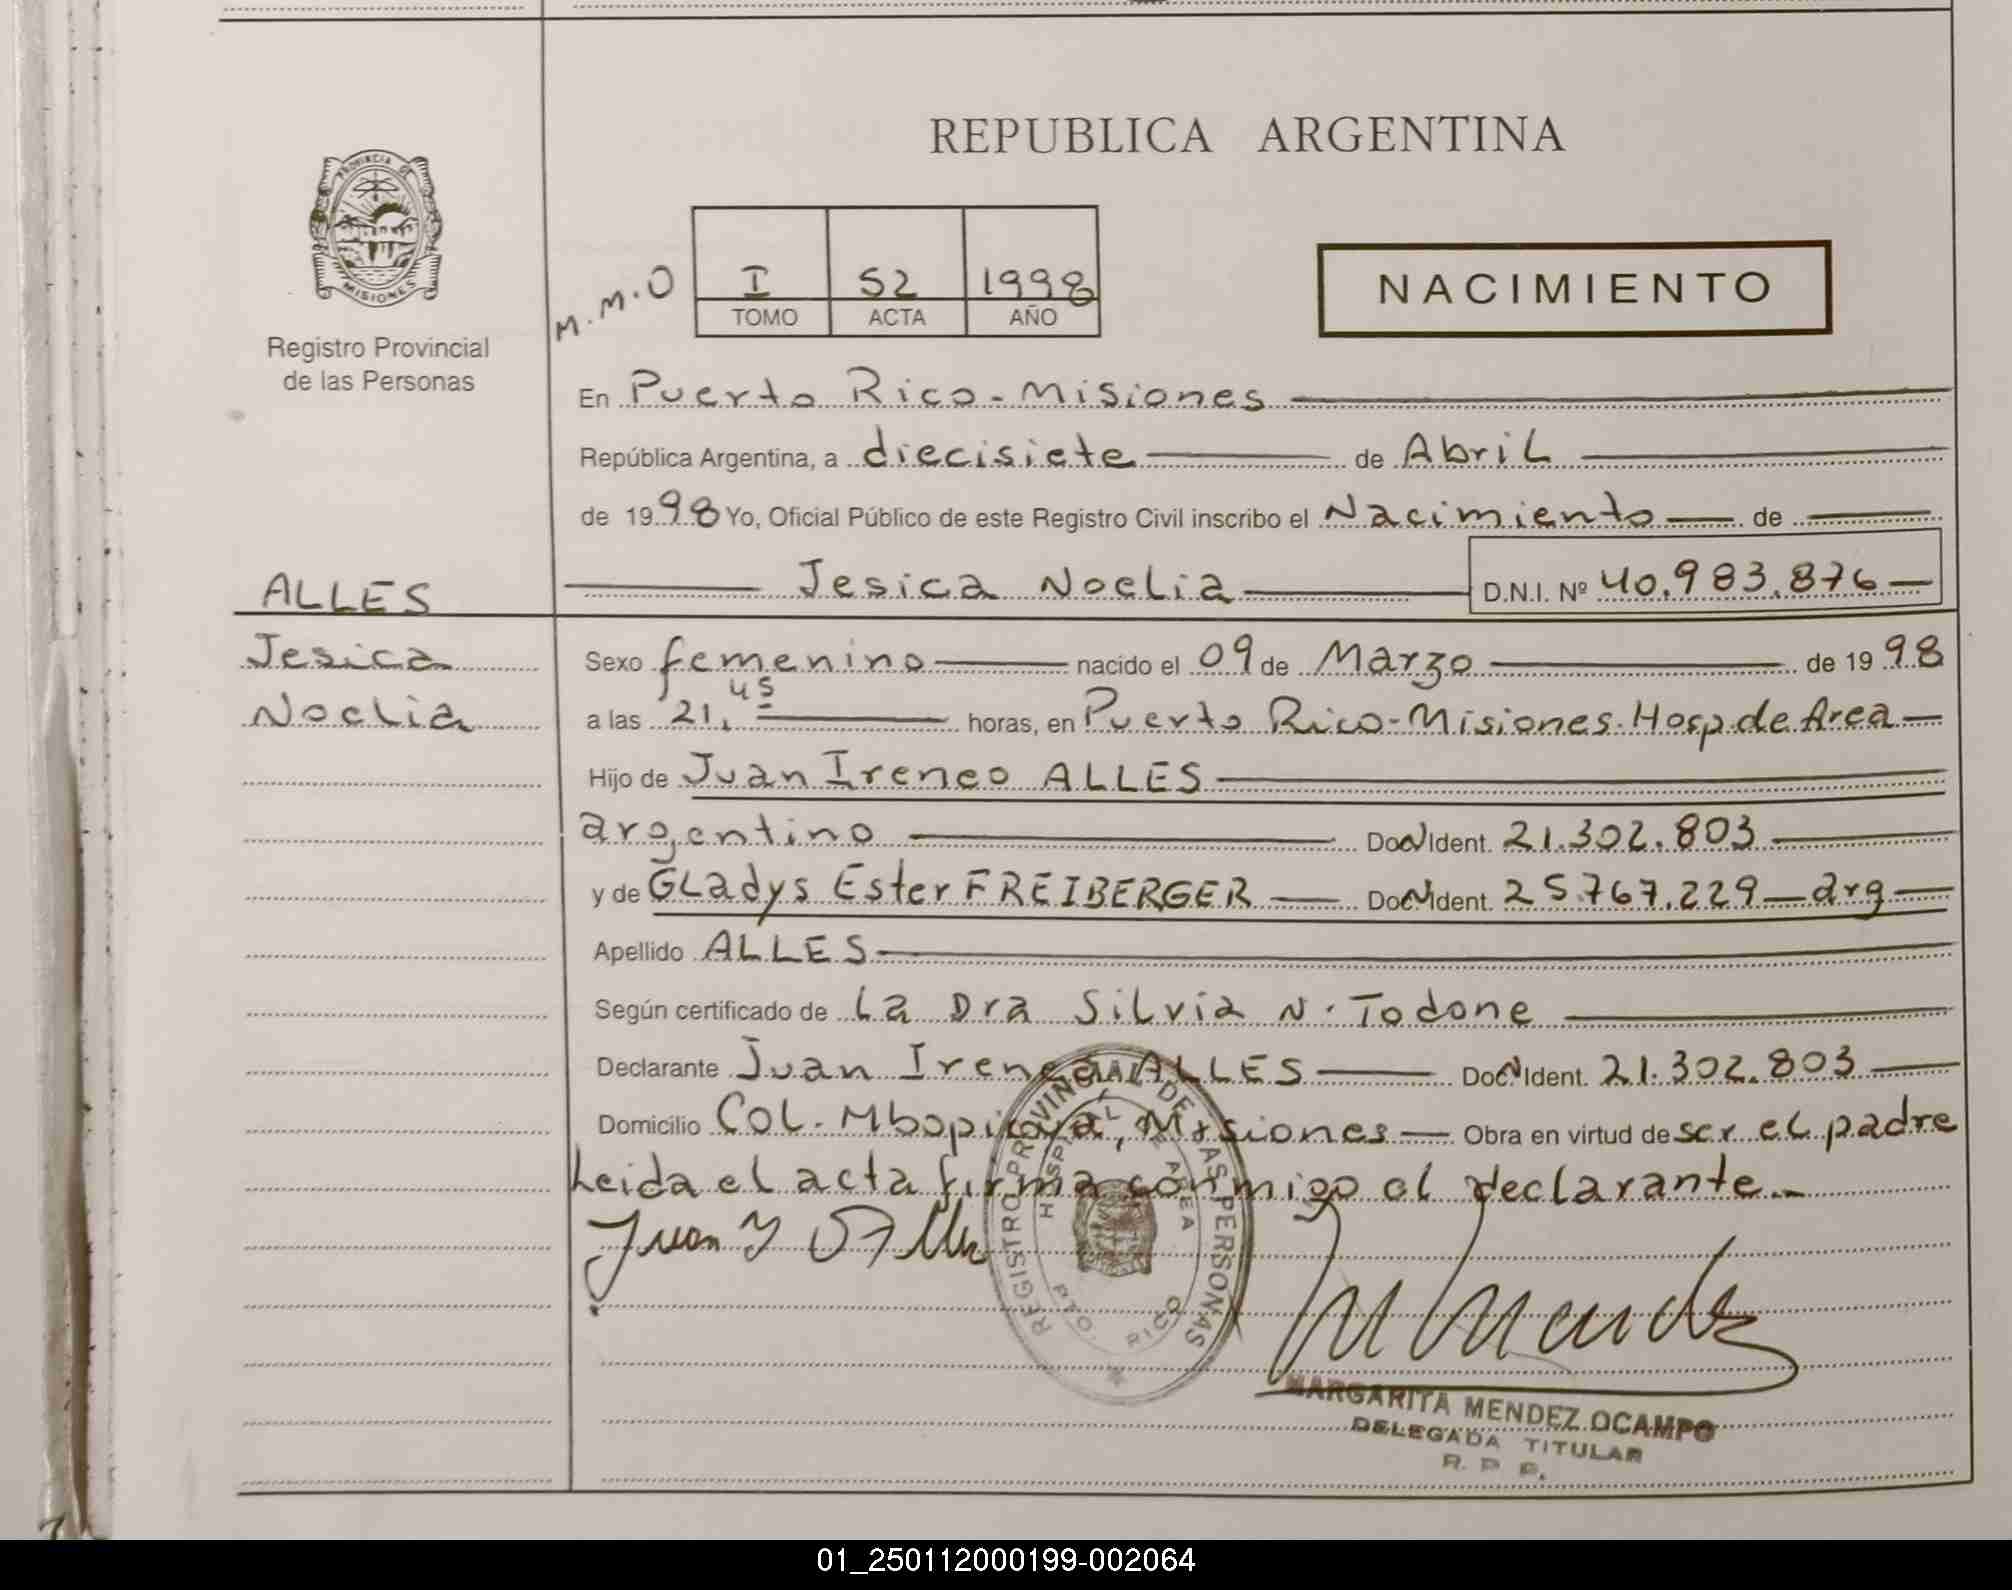 REPUBLICA ARGENTINA
PROVINCIA DE
MISIONES
Registro Provincial
de las Personas
M.M.O
I 52 1998
TOMO ACTA AÑO
NACIMIENTO
En Puerto Rico - Misiones
República Argentina, a diecisiete de Abril
de 1998 Yo, Oficial Público de este Registro Civil inscribo el Nacimiento de
ALLES
Jesica Noelia D.N.I. Nº 40.983.876
Jesica
Noelia
Sexo femenino nacido el 09 de Marzo de 1998
a las 21,45 horas, en Puerto Rico - Misiones. Hosp. de Area
Hijo de Juan Ireneo ALLES
argentino Doc N Ident. 21.302.803
y de Gladys Ester FREIBERGER Doc N Ident. 25.767.229 arg
Apellido ALLES
Según certificado de la Dra Silvia N. Todone
Declarante Juan Ireneo ALLES Doc N Ident. 21.302.803
Domicilio Col. Mbopicuá, Misiones Obra en virtud de ser el padre
Leida el acta firma conmigo el declarante.
Juan I Alles
REGISTRO PROVINCIAL DE LAS PERSONAS
HOSPITAL DE AREA
PTO. RICO
M Mendez
MARGARITA MENDEZ OCAMPO
DELEGADA TITULAR
R. P. P.
01_250112000199-002064